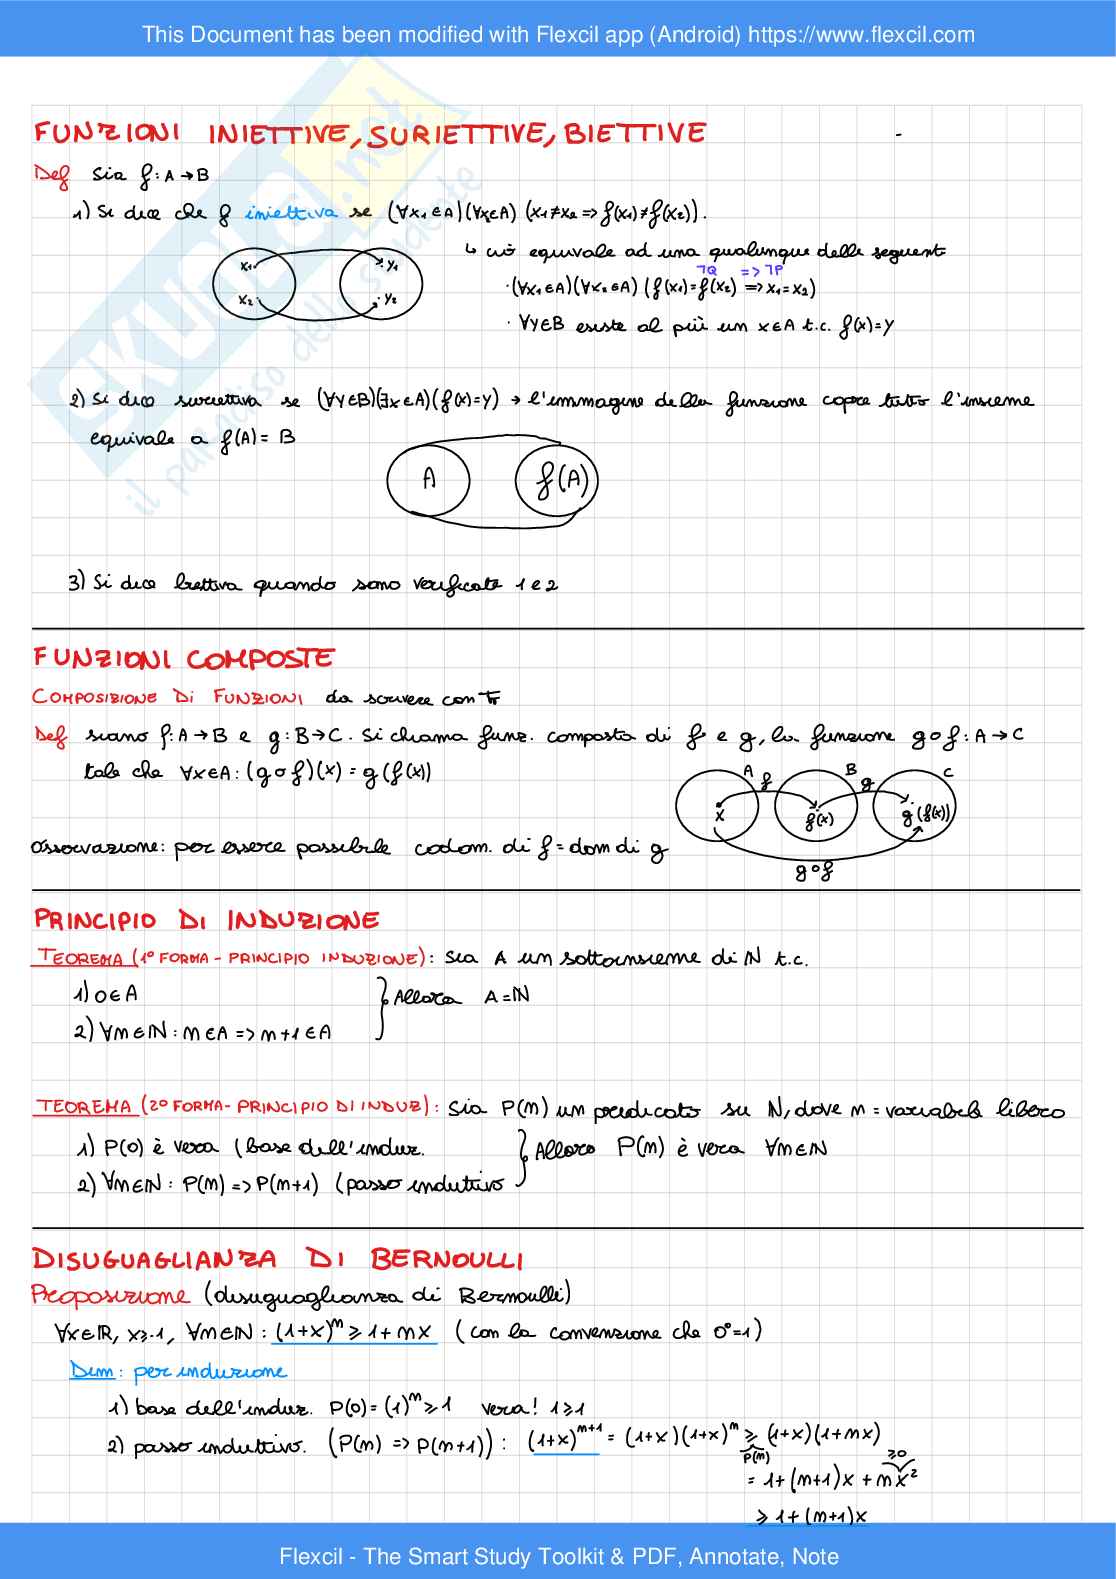 This Document has been modified with Flexcil app (Android) https://www.flexcil.com
FUNZIONI INIETTIVE, SURIETTIVE, BIETTIVE
Def Sia f: A → B
1) Si dice che f iniettiva se (∀x₁∈A)(∀x∈A) (x₁≠x₂ => f(x₁)≠f(x₂)).
↳ ciò equivale ad una qualunque delle seguenti
¬Q => ¬P
·(∀x₁∈A)(∀x₂∈A) (f(x₁)=f(x₂) => x₁=x₂)
· ∀y∈B esiste al più un x∈A t.c. f(x)=y
x₁ y₁
x₂ y₂
2) Si dice suriettiva se (∀y∈B)(∃x∈A)(f(x)=y) → l'immagine della funzione copre tutto l'insieme
equivale a f(A)= B
A f(A)
3) Si dice biettiva quando sono verificate 1 e 2
FUNZIONI COMPOSTE
COMPOSIZIONE DI FUNZIONI da scrivere con
Def siano f: A → B e g: B → C. Si chiama funz. composta di f e g, la funzione g∘f: A → C
tale che ∀x∈A: (g∘f)(x) = g(f(x))
A f B g C
x f(x) g(f(x))
g∘f
osservazione: per essere possibile codom. di f = dom di g
PRINCIPIO DI INDUZIONE
TEOREMA (1° FORMA - PRINCIPIO INDUZIONE): Sia A un sottoinsieme di N t.c.
1) 0∈A
2) ∀m∈ℕ: m∈A => m+1∈A
} Allora A=ℕ
TEOREMA (2° FORMA - PRINCIPIO DI INDUZ): Sia P(m) un predicato su N, dove m = variabile libera
1) P(0) è vera (base dell'induz.
2) ∀m∈ℕ: P(m) => P(m+1) (passo induttivo
} Allora P(m) è vera ∀m∈ℕ
DISUGUAGLIANZA DI BERNOULLI
Proposizione (disuguaglianza di Bernoulli)
∀x∈ℝ, x≥-1, ∀m∈ℕ: (1+x)ᵐ ≥ 1+mx (con la convenzione che 0⁰=1)
Dim: per induzione
1) base dell'induz. P(0) = (1)ᵐ ≥ 1 vera! 1≥1
2) passo induttivo. (P(m) => P(m+1)): (1+x)ᵐ⁺¹ = (1+x)(1+x)ᵐ ≥ (1+x)(1+mx)
P(m) ≥0
= 1+(m+1)x + mx²
≥ 1+(m+1)x
SKUOLA.net
il paradiso dello studente
Flexcil - The Smart Study Toolkit & PDF, Annotate, Note